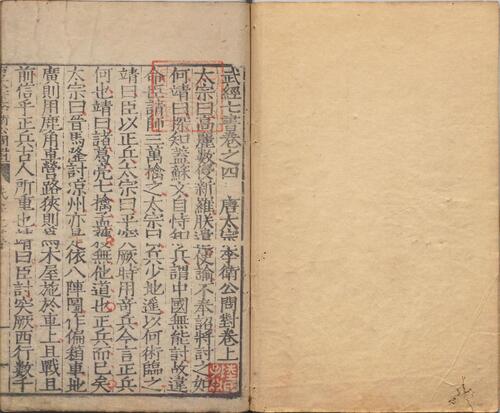 武經七書卷之四　唐太宗李衛公問對卷上
太宗曰高麗數侵新羅朕遣使諭不奉詔將討之如
何靖曰探知蓋蘇文自恃知兵謂中國無能討故違
命臣請師三萬擒之太宗曰兵少地遙以何術臨之
靖曰臣以正兵太宗曰平突厥時用奇兵今言正兵
何也靖曰諸葛亮七擒孟獲無他道也正兵而已矣
太宗曰晉馬隆討凉州亦是依八陣圖作偏箱車地
廣則用鹿角車營路狹則爲木屋施於車上且戰且
前信乎正兵古人所重也靖曰臣討突厥西行數千